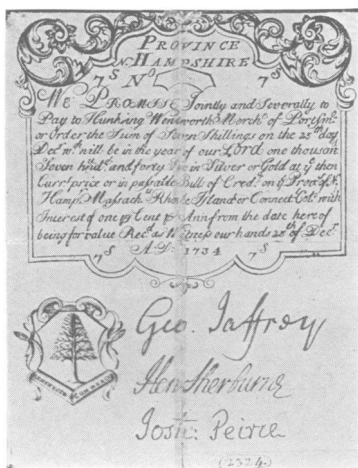 PROVINCE
N. HAMPSHIRE
7S No 7S
We PROMISE Jointly and Severally to
Pay to Hunking Wentworth Mercht of Portsmo
or Order the Sum of Seven Shillings on the 25th day
Decmr wch will be in the year of our LORD one thousand
Seven hundd and forty in Silver or Gold at ye then
Currt price or in passable Bill of Credt on ye Prov of N
Hampr Massach Rhode Island or Connect Colo with
Interest of one p Cent p Ann from the date here of
being for value Recd as Witness our hands 25th of Decr
7S A:D: 1734 7S
Geo. Jaffrey
Hen Sherburne
Josh: Peirce
(2324)